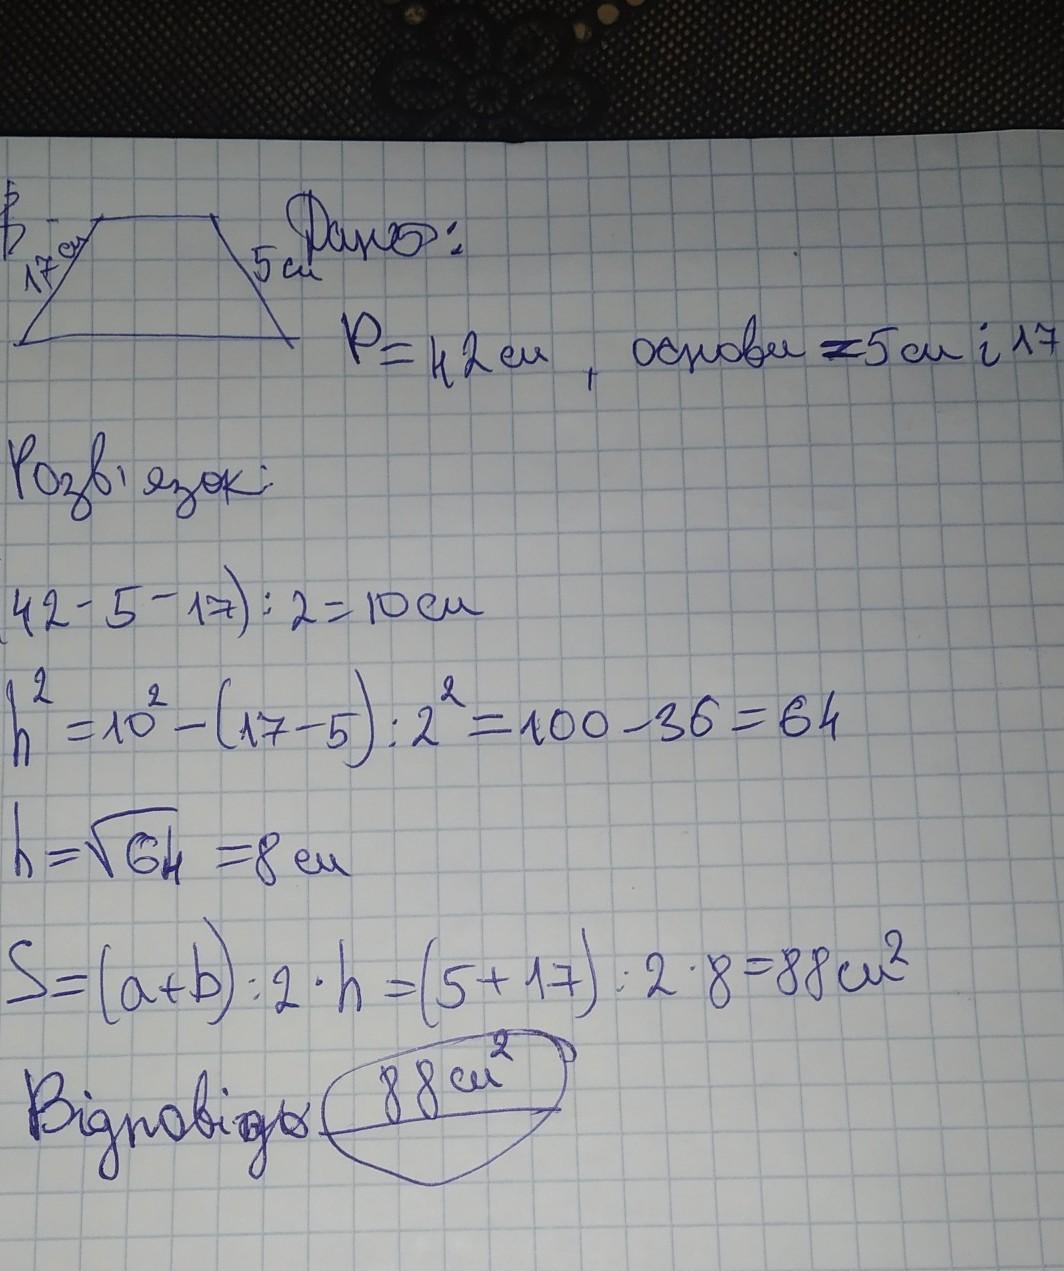 17см
5см
Дано:
P=42см, основи =5см і 17
Розв'язок:
(42-5-17):2=10см
h²=10²-(17-5):2²=100-36=64
h=√64 =8см
S=(a+b):2·h=(5+17):2·8=88см²
Відповідь 88см²